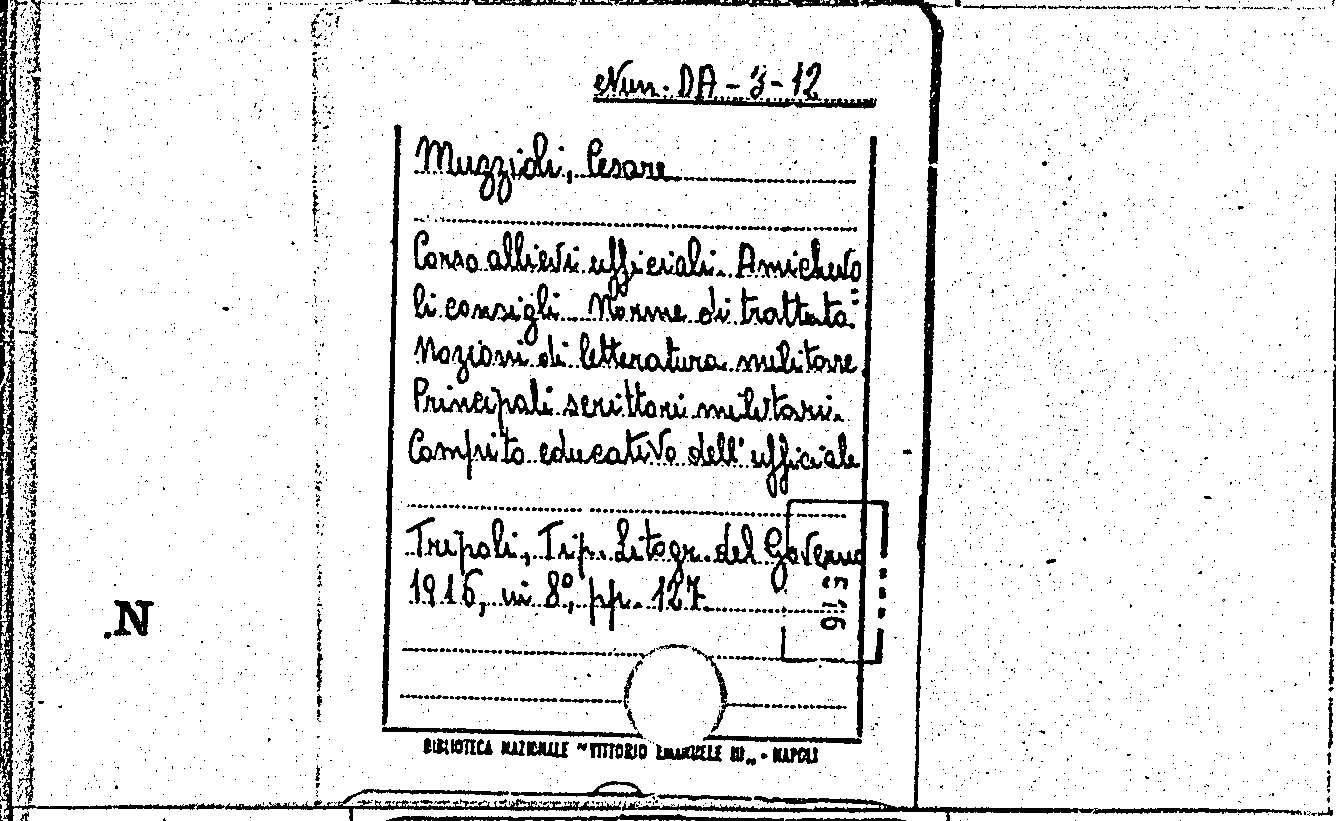 Nun. DA - 3 - 12
Muzzioli, Cesare
Corso allievi ufficiali. Amichevo
li consigli. Norme di trattata.
Nozioni di letteratura militare.
Principali scrittori militari.
Compito educativo dell'ufficiale
Tripoli, Tip. Litogr. del Governo
1916, in 8º, pp. 127.
.N
BIBLIOTECA NAZIONALE "VITTORIO EMANUELE III„ - NAPOLI